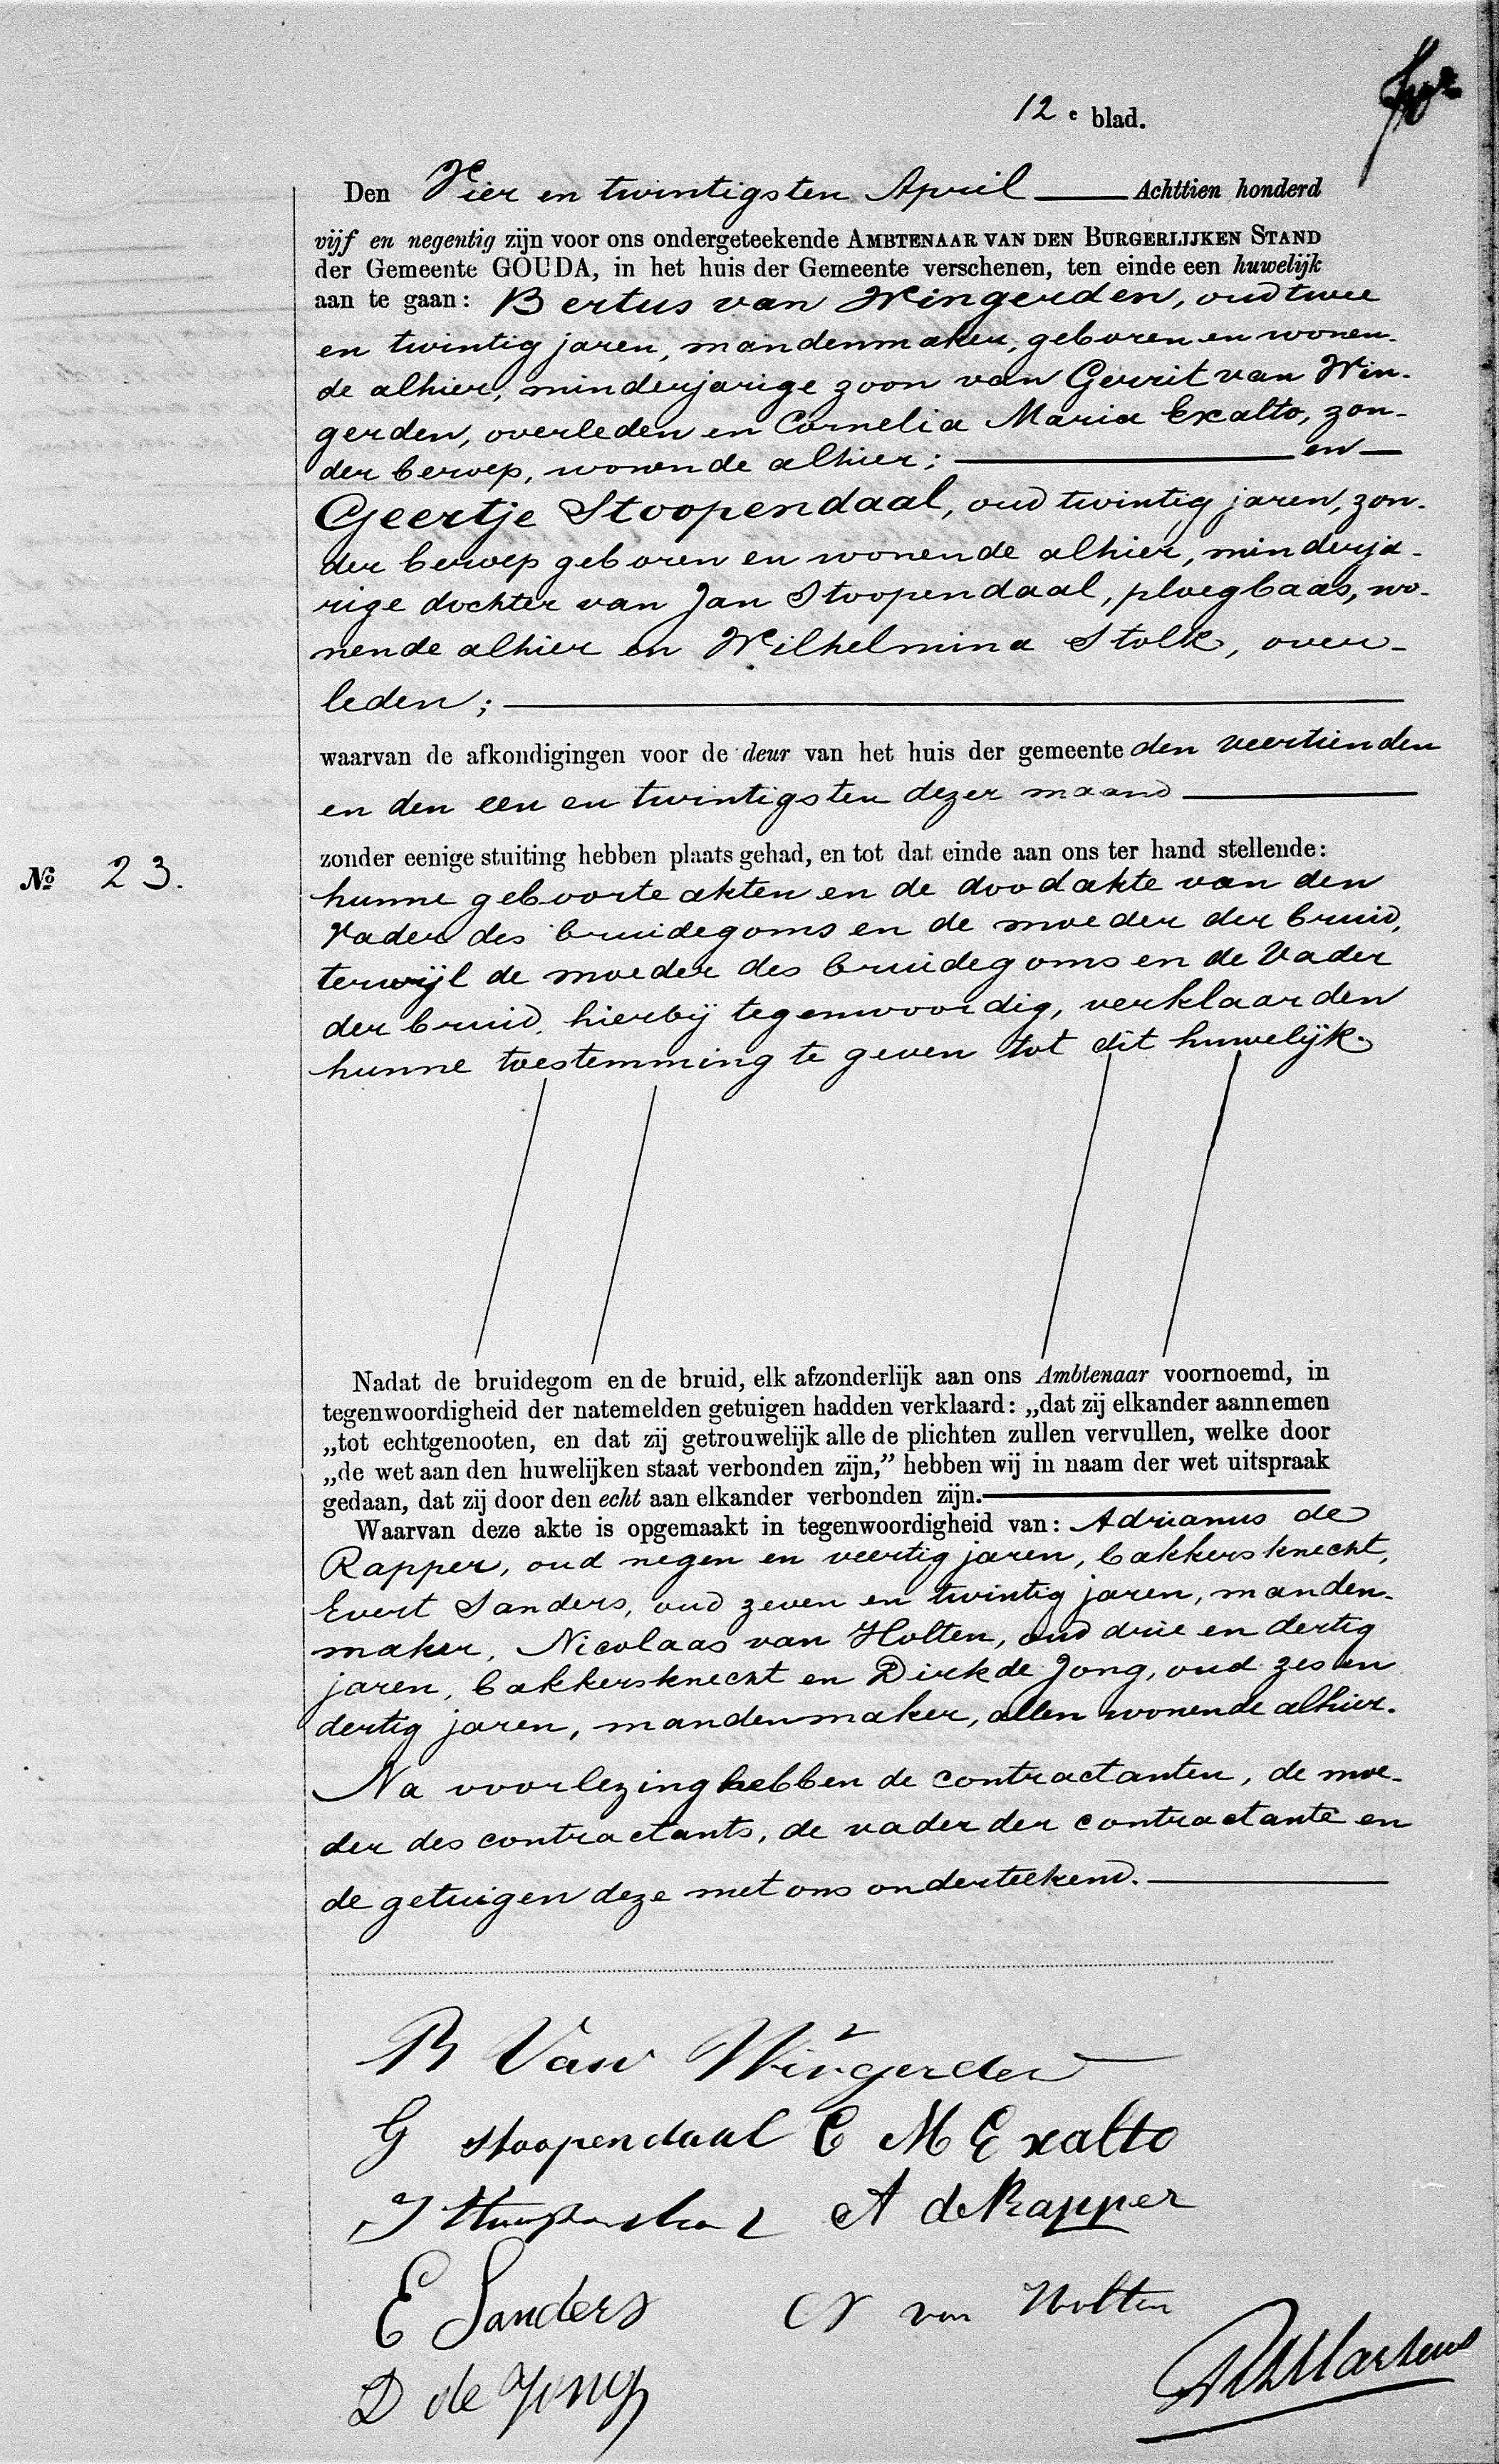 12e blad.
Den Vier en twintigsten April Achttien honderd
vijf en negentig zijn voor ons ondergeteekende AMBTENAAR VAN DEN BURGERLIJKEN STAND
der Gemeente GOUDA, in het huis der Gemeente verschenen, ten einde een huwelijk
aan te gaan: Bertus van Wingerden, oud twee
en twintig jaren, mandenmaker, geboren en wonen-
de alhier, minderjarige zoon van Gerrit van Win-
gerden, overleden en Cornelia Maria Exalto, zon-
der beroep, wonende alhier; en
Geertje Stoopendaal, oud twintig jaren, zon-
der beroep geboren en wonende alhier, minderja-
rige dochter van Jan Stoopendaal, ploegbaas, wo-
nende alhier en Wilhelmina Stolk, over-
leden;
waarvan de afkondigingen voor de deur van het huis der gemeente den veertienden
en den een en twintigsten dezer maand
zonder eenige stuiting hebben plaats gehad, en tot dat einde aan ons ter hand stellende:
No 23.
hunne geboorte akten en de doodakte van den
Vader des bruidegoms en de moeder der bruid,
terwijl de moeder des bruidegoms en de Vader
der bruid, hierbij tegenwoordig, verklaarden
hunne toestemming te geven tot dit huwelijk.
Nadat de bruidegom en de bruid, elk afzonderlijk aan ons Ambtenaar voornoemd, in
tegenwoordigheid der natemelden getuigen hadden verklaard: „dat zij elkander aannemen
„tot echtgenooten, en dat zij getrouwelijk alle de plichten zullen vervullen, welke door
„de wet aan den huwelijken staat verbonden zijn,” hebben wij in naam der wet uitspraak
gedaan, dat zij door den echt aan elkander verbonden zijn.
Waarvan deze akte is opgemaakt in tegenwoordigheid van: Adrianus de
Rapper, oud negen en veertig jaren, bakkersknecht,
Evert Sanders, oud zeven en twintig jaren, manden-
maker, Nicolaas van Holten, oud drie en dertig
jaren, bakkersknecht en Dirk de Jong, oud zes en
dertig jaren, mandenmaker, allen wonende alhier.
Na voorlezing hebben de contractanten, de moe-
der des contractants, de vader der contractante en
de getuigen deze met ons onderteekend.
B Van Wingerden
G Stoopendaal C M Exalto
J Stoopendaal A de Rapper
E Sanders N van Holten
D de Jong Martens